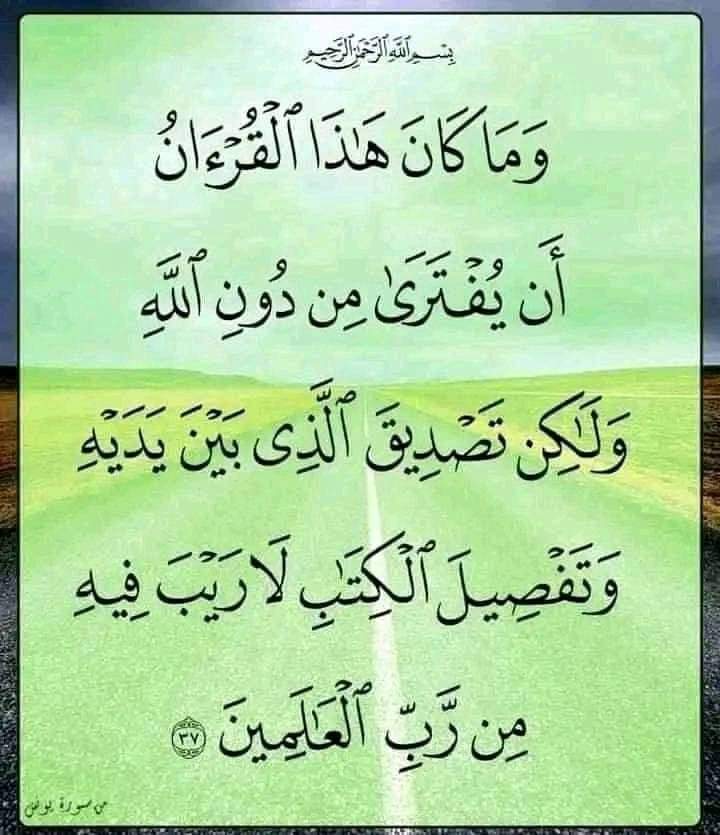 بِسْمِ ٱللَّهِ ٱلرَّحْمَٰنِ ٱلرَّحِيمِ
وَمَا كَانَ هَٰذَا ٱلْقُرْءَانُ
أَن يُفْتَرَىٰ مِن دُونِ ٱللَّهِ
وَلَٰكِن تَصْدِيقَ ٱلَّذِى بَيْنَ يَدَيْهِ
وَتَفْصِيلَ ٱلْكِتَٰبِ لَا رَيْبَ فِيهِ
مِن رَّبِّ ٱلْعَٰلَمِينَ ٣٧
من سورة يونس